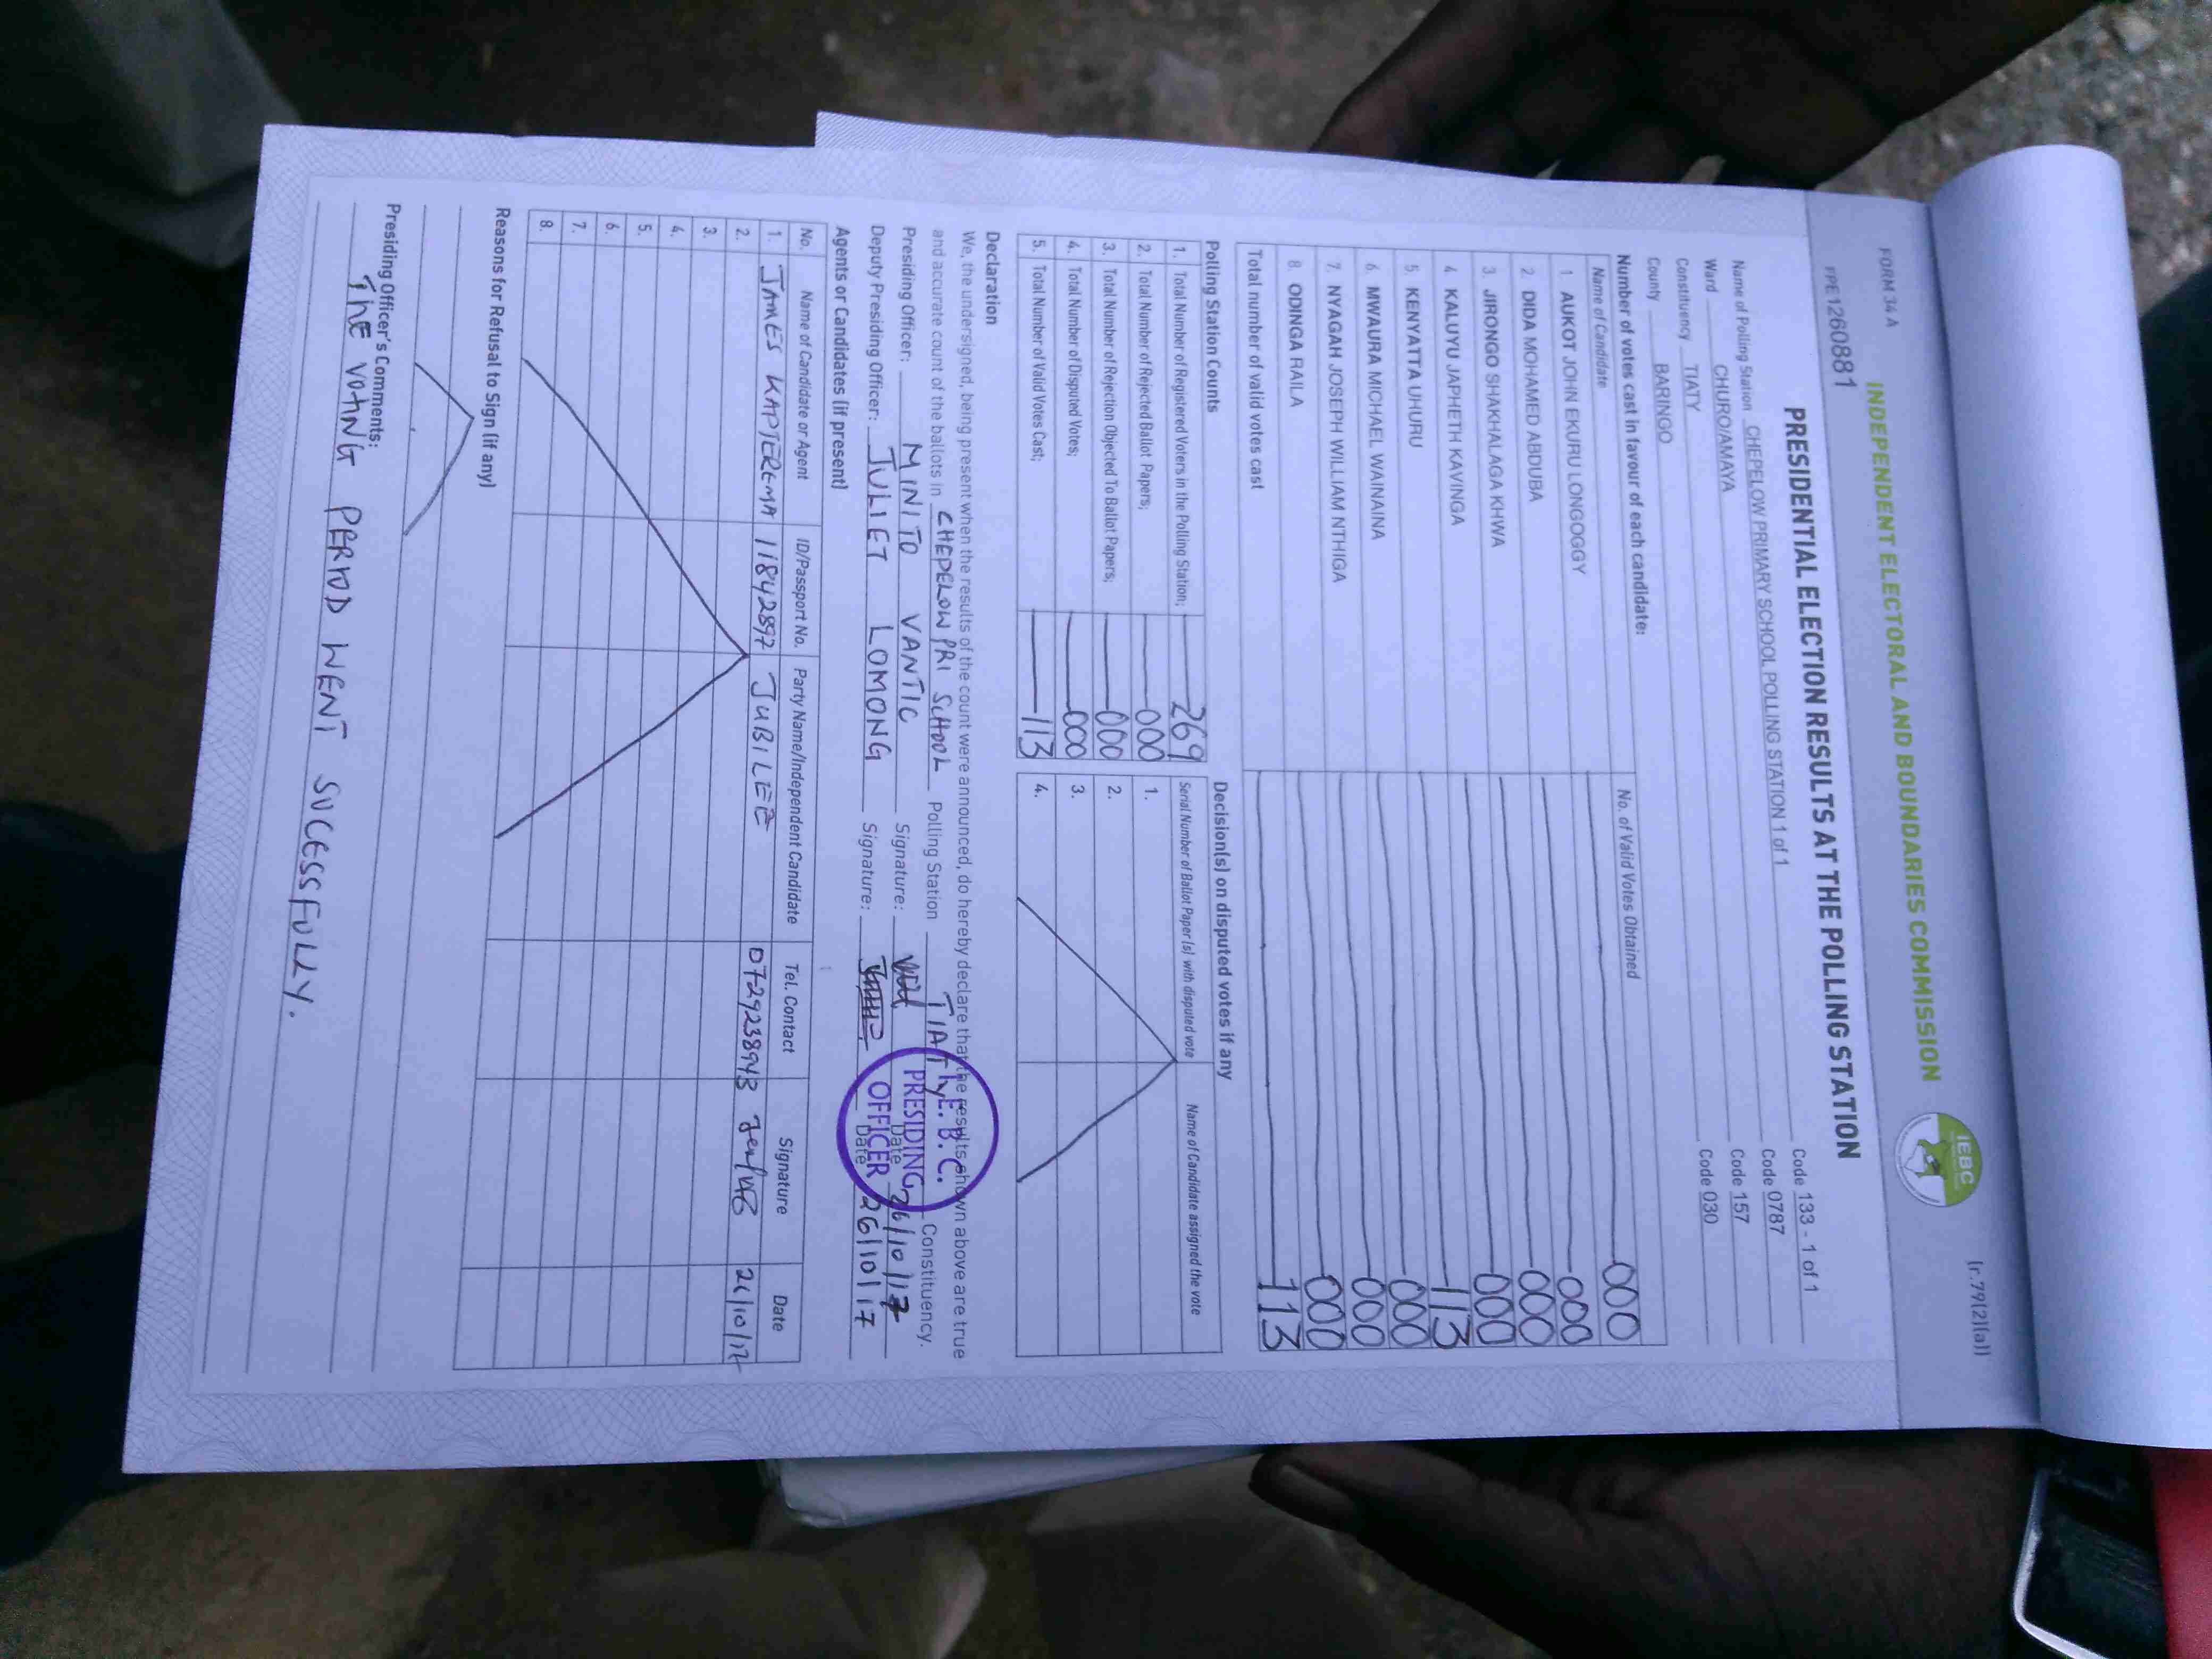 FORM 34A
(r.79(2)(a))
INDEPENDENT ELECTORAL AND BOUNDARIES COMMISSION
IEBC
PPE1260881
PRESIDENTIAL ELECTION RESULTS AT THE POLLING STATION
Name of Polling Station CHEPELOW PRIMARY SCHOOL POLLING STATION 1 of 1 Code 133 - 1 of 1
Ward CHURO/AMAYA Code 0787
Constituency TIATY Code 157
County BARINGO Code 030
Number of votes cast in favour of each candidate:
Name of Candidate No. of Valid Votes Obtained
1 AUKOT JOHN EKURU LONGOGGY 000
2 DIDA MOHAMED ABDUBA 000
3. JIRONGO SHAKHALAGA KHWA 000
4 KALUYU JAPHETH KAVINGA 000
5 KENYATTA UHURU 113
6 MWAURA MICHAEL WAINAINA 000
7. NYAGAH JOSEPH WILLIAM NTHIGA 000
8. ODINGA RAILA 000
Total number of valid votes cast 113
Polling Station Counts
1. Total Number of Registered Voters in the Polling Station; 269
2. Total Number of Rejected Ballot Papers; 000
3. Total Number of Rejection Objected To Ballot Papers; 000
4. Total Number of Disputed Votes; 000
5. Total Number of Valid Votes Cast; 113
Decision(s) on disputed votes if any
Serial Number of Ballot Paper(s) with disputed vote Name of Candidate assigned the vote
1.
2.
3.
4.
Declaration
We, the undersigned, being present when the results of the count were announced, do hereby declare that the results shown above are true
and accurate count of the ballots in CHEPELOW PRI SCHOOL Polling Station TIATY Constituency.
Presiding Officer: MINITO VANTIC Signature: Date 26/10/17
Deputy Presiding Officer: JULIET LOMONG Signature: Date 26/10/17
I.E.B.C.
PRESIDING
OFFICER
Agents or Candidates (if present)
No. Name of Candidate or Agent ID/Passport No. Party Name/Independent Candidate Tel. Contact Signature Date
1. JAMES KAPTEREMA 11842897 JUBILEE 0729238943 26/10/17
2.
3.
4.
5.
6.
7.
8.
Reasons for Refusal to Sign (if any)
Presiding Officer's Comments:
The VOTING PERIOD WENT SUCESSFULLY.